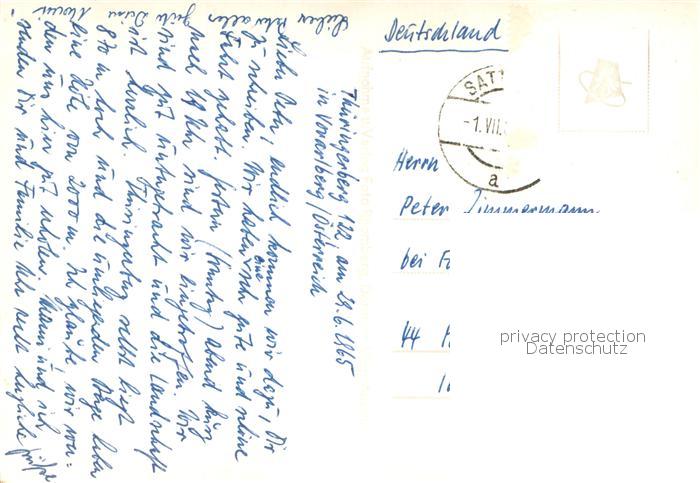 Thüringerberg 122 am 29.6.1965
in Vorarlberg / Österreich
Lieber Peter, endlich kommen wir dazu, Dir
zu schreiben. Wir haben eine sehr gute und schöne
Fahrt gehabt. Gestern (Montag) abend kurz
nach 19 Uhr sind wir eingetroffen. Wir
sind gut untergebracht und die Landschaft
ist herrlich. Thüringerberg selbst liegt
870 m hoch und die umliegenden Berge haben
eine Höhe von 2000 m. Ich glaube, wir wer=
den uns hier gut erholen. Mami und ich
senden Dir und Familie sehr herzliche Grüße
Lieber Peter alles Gute Deine
Deutschland
SAT
-1. VII.
a
Herrn
Peter Zimmermann
bei
44
privacy protection
Datenschutz